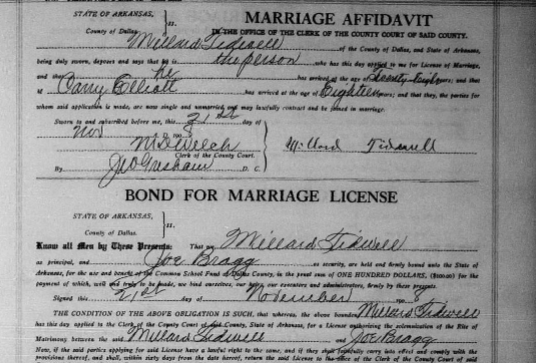 STATE OF ARKANSAS, MARRIAGE AFFIDAVIT
County of Dallas. ss. IN THE OFFICE OF THE CLERK OF THE COUNTY COURT OF SAID COUNTY.
Millard Tidwell of the County of Dallas, and State of Arkansas,
being duly sworn, deposes and says that he is the person who has this day applied to me for License of Marriage,
and that he has arrived at the age of Twenty Eight years; and that
Carry Elliott has arrived at the age of Eighteen years; and that they, the parties for
whom said application is made, are now single and unmarried and may lawfully contract and be joined in marriage.
Sworn to and subscribed before me, this 21st day of
Nov A. D. 190 8
M D Welch Millard Tidwell
Clerk of the County Court.
By J W Gresham D. C.
BOND FOR MARRIAGE LICENSE
STATE OF ARKANSAS,
County of Dallas. ss.
Know all Men by These Presents: That we, Millard Tidwell
as principal, and Joe Bragg as security, are held and firmly bound unto the State of
Arkansas, for the use and benefit of the Common School Fund of Dallas County, in the penal sum of ONE HUNDRED DOLLARS, ($100.00) for the
payment of which, well and truly to be made, we bind ourselves, our heirs, our executors and administrators, firmly by these presents.
Signed this 21st day of November 190 8
THE CONDITION OF THE ABOVE OBLIGATION IS SUCH, that whereas, the above bounden Millard Tidwell
has this day applied to the Clerk of the County Court of said County, State of Arkansas, for a License authorizing the solemnization of the Rite of
Matrimony between the said Millard Tidwell and Joe Bragg
Now, if the said parties applying for said License have a lawful right to the same, and if they shall faithfully carry into effect and comply with the
provisions thereof, and shall, within sixty days from the date hereof, return the said License to the office of the Clerk of the County Court of